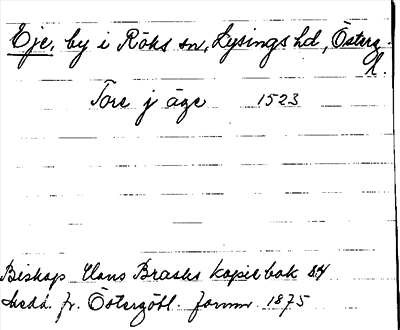 Eje, by i Röks sn, Lysings hd, Österg.
l.
Tore j äge 1523
Biskop Hans Brasks kopiebok s.
Medd. fr. Östergötl. fornm. 1875